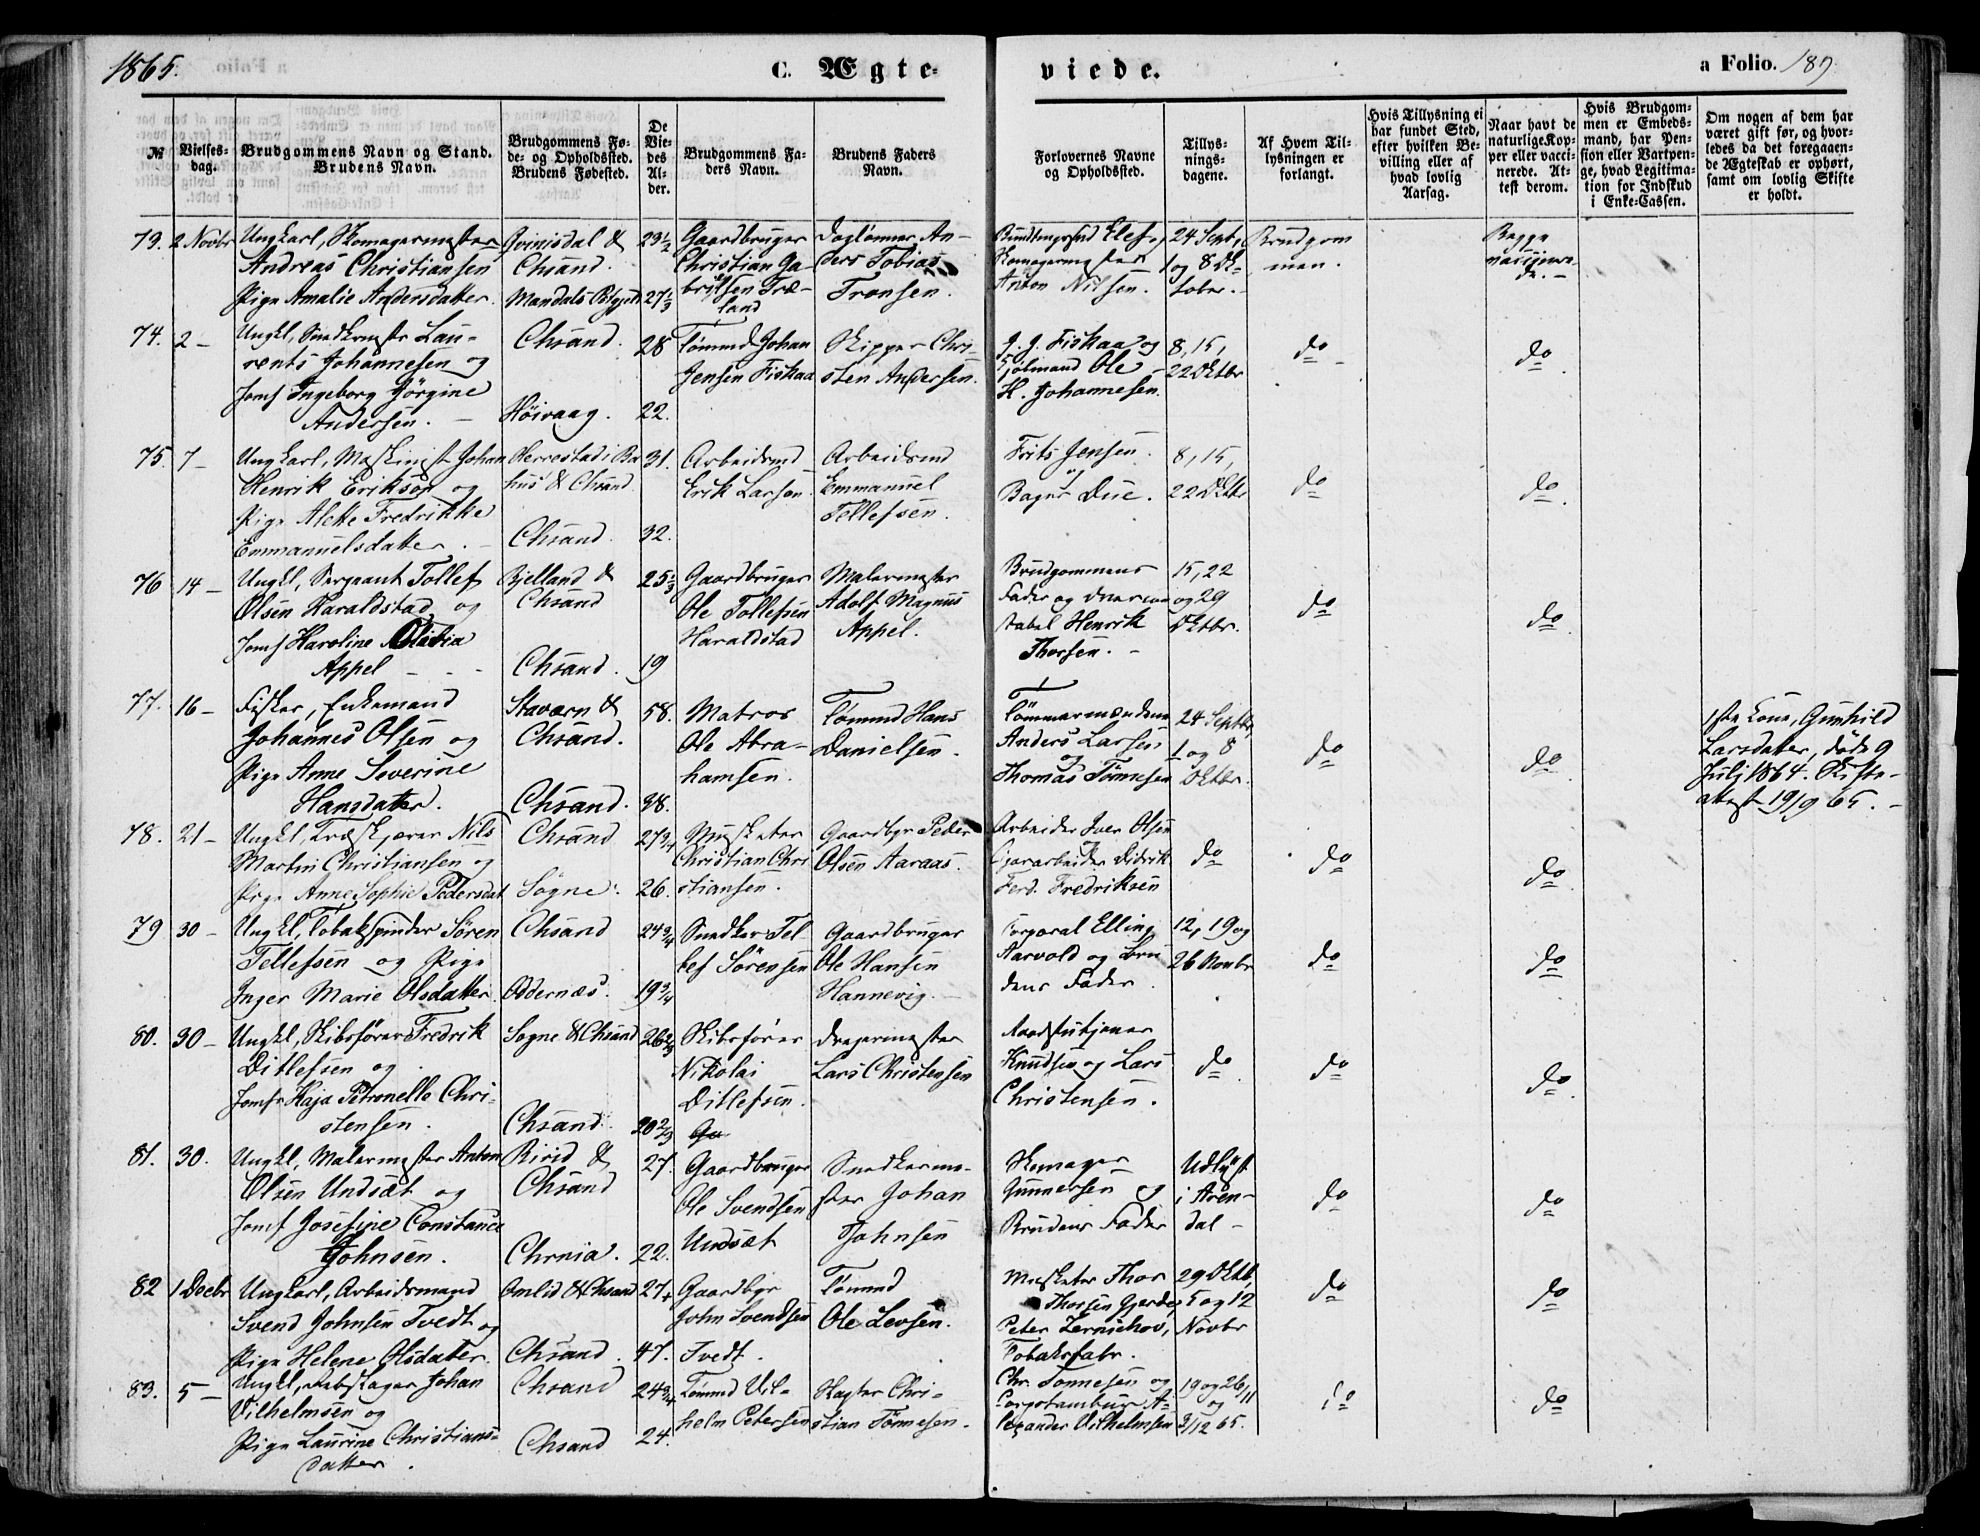 1865.
C. Ægte-
viede.
a Folio. 189.
№
Vielses-
dag.
Brudgommens Navn og Stand.
Brudens Navn.
Brudgommens Fø-
de- og Opholdssted.
Brudens Fødested.
De
Vie-
des
Al-
der.
Brudgommens Fa-
ders Navn.
Brudens Faders
Navn.
Forlovernes Navne
og Opholdssted.
Tillys-
nings-
dagene.
Af Hvem Til-
lysningen er
forlangt.
Hvis Tillysning ei
har fundet Sted,
efter hvilken Be-
villing eller af
hvad lovlig
Aarsag.
Naar havt de
naturlige Kop-
per eller vacci-
nerede. At-
test derom.
Hvis Brudgom-
men er Embeds-
mand, har Pen-
sion eller Vartpen-
ge, hvad Legitima-
tion for Indskud
i Enke-Cassen.
Om nogen af dem har
været gift før, og hvor-
ledes da det foregaaen-
de Ægteskab er ophørt,
samt om lovlig Skifte
er holdt.
73. 2 Novbr
Ungkarl, Skomagermester
Andreas Christiansen
Pige Amalie Andersdatter.
Qvinisdal &
Chsand.
Mandals Præstegj.
23½
27⅓
Gaardbruger
Christian Ga-
brilsen Træ-
land
Daglønner An-
ders Tobias
Tronsen.
Elef-
Skomagermester
Anton Nilsen.
24 Sept,
1 og 8 Ok-
tober.
Brudgom
men.
Begge
vaccinere-
de. -
74. 2 -
Ungkl, Snedkermester Lau-
rents Johannesen og
Jomf Ingeborg Jörgine
Andersen. -
Chsand.
Höivaag.
28
22.
Tømmd Johan
Jensen Fiskaa
Skipper Chri-
sten Andersen.
J. J. Fiskaa og
Sjömand Ole
H. Johannesen.
8, 15,
22 Oktbr
do
do
75. 7 -
Ungkarl, Maskinist Johan
Henrik Erikson og
Pige Alette Fredrikke
Emmanuelsdatter. -
Herrestad i Ba
hus & Chsand.
Chsand.
31.
32.
Arbeidsmd
Erik Larsen.
Arbeidsmd
Emmanuel
Tellefsen.
Frits Jensen.
og
Bager Due.
8, 15,
22 Oktbr
do
do
76 14 -
Ungkl, Sergeant Tollef
Olsen Haraldstad og
Jomf Karoline Olivia
Appel - - -
Bjelland &
Chsand
Chsand.
25⅓
19
Gaardbruger
Ole Tollefsen
Haraldstad
Malermester
Adolf Magnus
Appel.
Brudgommens
Fader og
Henrik
Thorsen. -
15, 22
og 29
Oktbr.
do
do
77. 16 -
Fisker, Enkemand
Johannes Olsen og
Pige Anne Severine
Hansdatter.
Staværn &
Chsand.
Chsand.
58.
38.
Matros
Ole Abra-
hamsen.
Tømmd Hans
Danielsen.
Tömmermændene
Anders Larsen
og
Thomas Tönnesen
24 Septbr,
1 og 8
Oktbr.
do
do
1ste Kone, Gunhild
Larsdatter, döde 9
Juli 1864. Skifte-
attest 19/9 65. -
78. 21 -
Ungkl, Træskjærer Nils
Martin Christiansen og
Pige Anne Sophie Pedersdat
Chsand
Sögne.
27¾
26.
Musketer
Christian Chri
stiansen.
Gaardbgr Peder
Olsen Aaraas.
Arbeider Iver Olsen
Cigararbeider Didrik
Ferd. Fredriksen
do
do
do
79 30 -
Ungkl, Tobakspinder Sören
Tellefsen og Pige
Inger Marie Olsdatter.
Chsand
Oddernæs.
24¾
19¾
Snedker Tel-
lef Sörensen
Gaardbruger
Ole Hansen
Hannevig. -
Corporal Elling
Aarvold og Bru
dens Fader.
12, 19 og
26 Novbr
do
do
80. 30 -
Ungkl, Skibsförer Fredrik
Ditlefsen og
Jomfr Kaja Petronelle Chri-
stensen.
Sogne & Chsand
Chsand.
26⅔
20⅔
Skibsfører
Nikolai
Ditlefsen.
Ga
Drejermester
Lars Christensen
Raadstutjener
Knudsen og Lars
Christensen.
do
do
do
81. 30.
Ungkl, Malermester Anton
Olsen Undsæt og
Jomf Josefine Constance
Johnsen.
Birid &
Chsand
Chrnia.
27.
22.
Gaardbruger
Ole Svendsen
Undsæt
Snedkerme-
ster Johan
Johnsen
Skomager
Gunnersen og
Brudens Fader
Udlyst
i Aren-
dal -
do
do
82 1 Decbr
Ungkarl, Arbeidsmand
Svend Johnsen Tvedt og
Pige Helene Olsdatter.
Omlid & Chsand
Chsand.
27
47.
Gaardbgr
John Svendsen
Tvedt.
Tömmd
Ole Levsen.
Musketer Thor
Thorsen Gjerde,
Peter Zernichov,
Tobaksfabr.
29 Oktb,
5 og 12
Novbr
do
do
83. 5 -
Ungkl, Rebslager Johan
Vilhelmsen og
Pige Laurine Christians-
datter.
Chsand
Chsand
24¾
24.
Tömmd Vil-
helm Petersen
Christian Tönnesen.
Chr. Tonnesen og
Corpstambur A-
lexander Vilhelmsen
19 og 26/11
og
3/12 65.
do
do